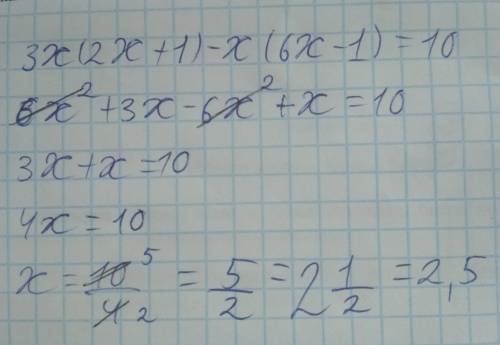 3x(2x+1)-x(6x-1)=10
6x²+3x-6x²+x=10
3x+x=10
4x=10
x=10/4 5/2=5/2=2 1/2=2,5